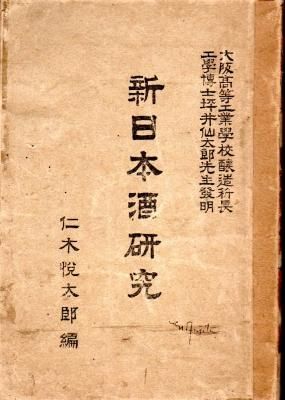 大阪高等工業學校醸造科長
工學博士坪井仙太郎先生發明
新日本酒研究
仁木悅太郎編